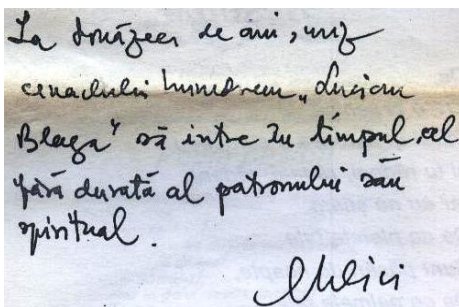 La douăzeci de ani, urez
cenaclului hunedorean „Lucian
Blaga” să intre în timpul cel
fără durată al patronului său
spiritual.